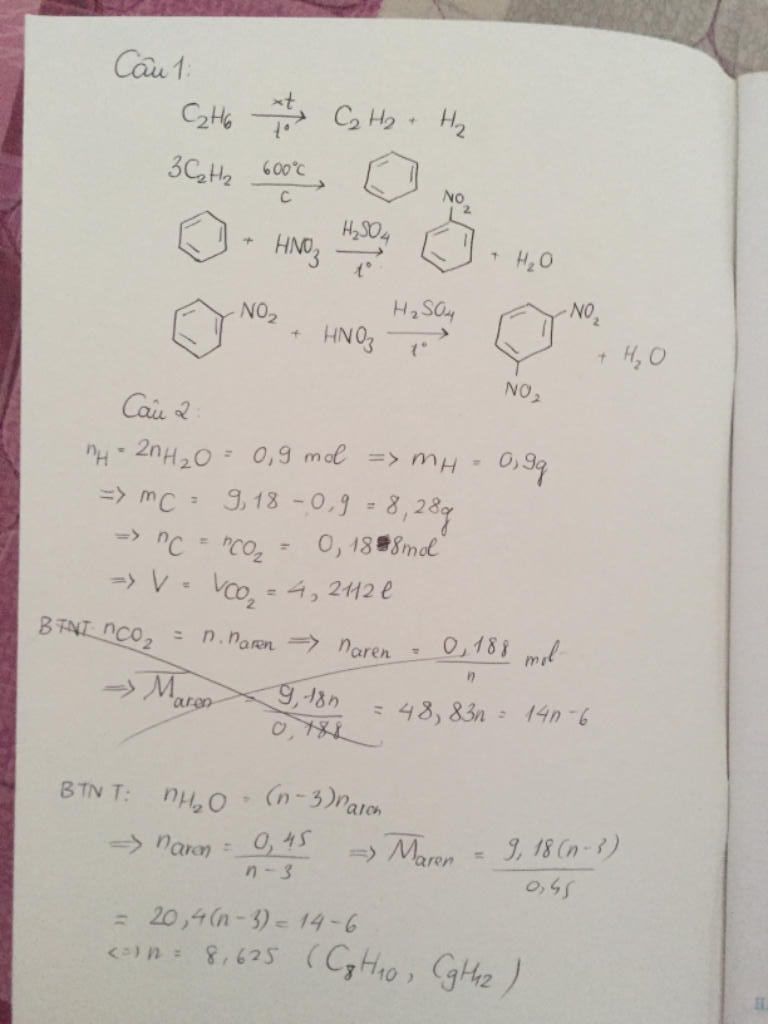 Câu 1:
C₂H₆ xt t° → C₂H₂ + H₂
3C₂H₂ 600°C C →
NO₂
+ HNO₃ H₂SO₄ t° → + H₂O
NO₂ + HNO₃ H₂SO₄ t° → NO₂ + H₂O
NO₂
Câu 2:
nH = 2nH₂O = 0,9 mol => mH = 0,9g
=> mC = 9,18 - 0,9 = 8,28g
=> nC = nCO₂ = 0,188mol
=> V = VCO₂ = 4,2112l
BTNT: nCO₂ = n.naren => naren = 0,188/n mol
=> M̅aren = 9,18n/0,188 = 48,83n = 14n-6
BTNT: nH₂O = (n-3)naren
=> naren = 0,45/n-3 => M̅aren = 9,18(n-3)/0,45
= 20,4(n-3) = 14-6
<=> n = 8,625 (C₈H₁₀, C₉H₁₂)